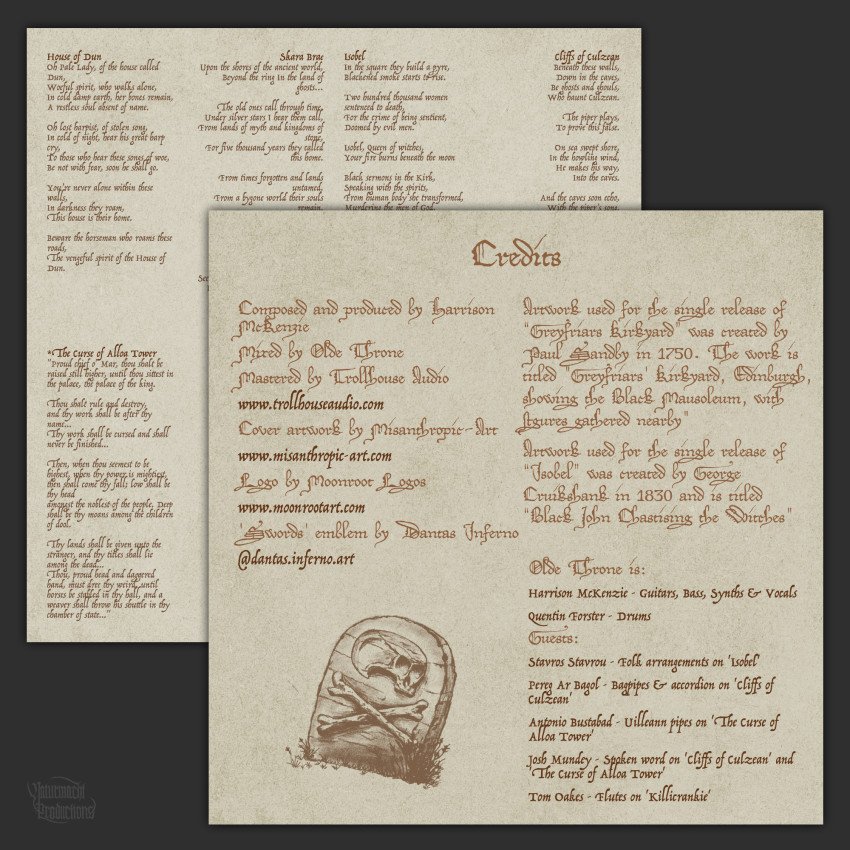 House of Dun
Oh Pale Lady, of the house called
Dun,
Woeful spirit, who walks alone,
In cold damp earth, her bones remain,
A restless soul absent of name.
Oh lost harpist, of stolen song,
In cold of night, hear his great harp
cry,
To those who hear these songs of woe,
Be not with fear, soon he shall go.
You're never alone within these
walls,
In darkness they roam,
This house is their home.
Beware the horseman who roams these
roads,
The vengeful spirit of the House of
Dun.
*The Curse of Alloa Tower
"Proud chief o' Mar, thou shalt be
raised still higher, until thou sittest in
the palace, the palace of the king.
Thou shalt rule and destroy,
and thy work shall be after thy
name...
Thy work shall be cursed and shall
never be finished...
Then, when thou seemest to be
highest, when thy power is mightiest,
then shall come thy fall; low shall be
thy head
amongst the noblest of the people. Deep
shall be thy moans among the children
of dool.
Thy lands shall be given unto the
stranger, and thy titles shall lie
among the dead...
Thou, proud head and daggered
hand, must dree thy weird, until
horses be stalled in thy hall, and a
weaver shall throw his shuttle in thy
chamber of state..."
Skara Brae
Upon the shores of the ancient world,
Beyond the ring In the land of
ghosts...
The old ones call through time,
Under silver stars I hear them call,
From lands of myth and kingdoms of
stone,
For five thousand years they called
this home.
From times forgotten and lands
untamed,
From a bygone world their souls
remain.
Isobel
In the square they build a pyre,
Blackened smoke starts to rise.
Two hundred thousand women
sentenced to death,
For the crime of being sentient,
Doomed by evil men.
Isobel, Queen of witches,
Your fire burns beneath the moon
Black sermons in the Kirk,
Speaking with the spirits,
From human body she transformed,
Murdering the men of God.
Cliffs of Culzean
Beneath these walls,
Down in the caves,
Be ghosts and ghouls,
Who haunt Culzean.
The piper plays,
To prove this false.
On sea swept shore,
In the howling wind,
He makes his way,
Into the caves.
And the caves soon echo,
With the piper's song.
Credits
Composed and produced by Harrison
McKenzie
Mixed by Olde Throne
Mastered by Trollhouse Audio
www.trollhouseaudio.com
Cover artwork by Misanthropic-Art
www.misanthropic-art.com
Logo by Moonroot Logos
www.moonrootart.com
'Swords' emblem by Dantas Inferno
@dantas.inferno.art
Artwork used for the single release of
"Greyfriars Kirkyard" was created by
Paul Sandby in 1750. The work is
titled "Greyfriars' Kirkyard, Edinburgh,
showing the Black Mausoleum, with
figures gathered nearby"
Artwork used for the single release of
"Isobel" was created by George
Cruikshank in 1830 and is titled
"Black John Chastising the Witches"
Olde Throne is:
Harrison McKenzie - Guitars, Bass, Synths & Vocals
Quentin Forster - Drums
Guests:
Stavros Stavrou - Folk arrangements on 'Isobel'
Pereg Ar Bagol - Bagpipes & accordion on 'Cliffs of
Culzean'
Antonio Bustabad - Uilleann pipes on 'The Curse of
Alloa Tower'
Josh Mundey - Spoken word on 'Cliffs of Culzean' and
'The Curse of Alloa Tower'
Tom Oakes - Flutes on 'Killicrankie'
Naturmacht
Productions